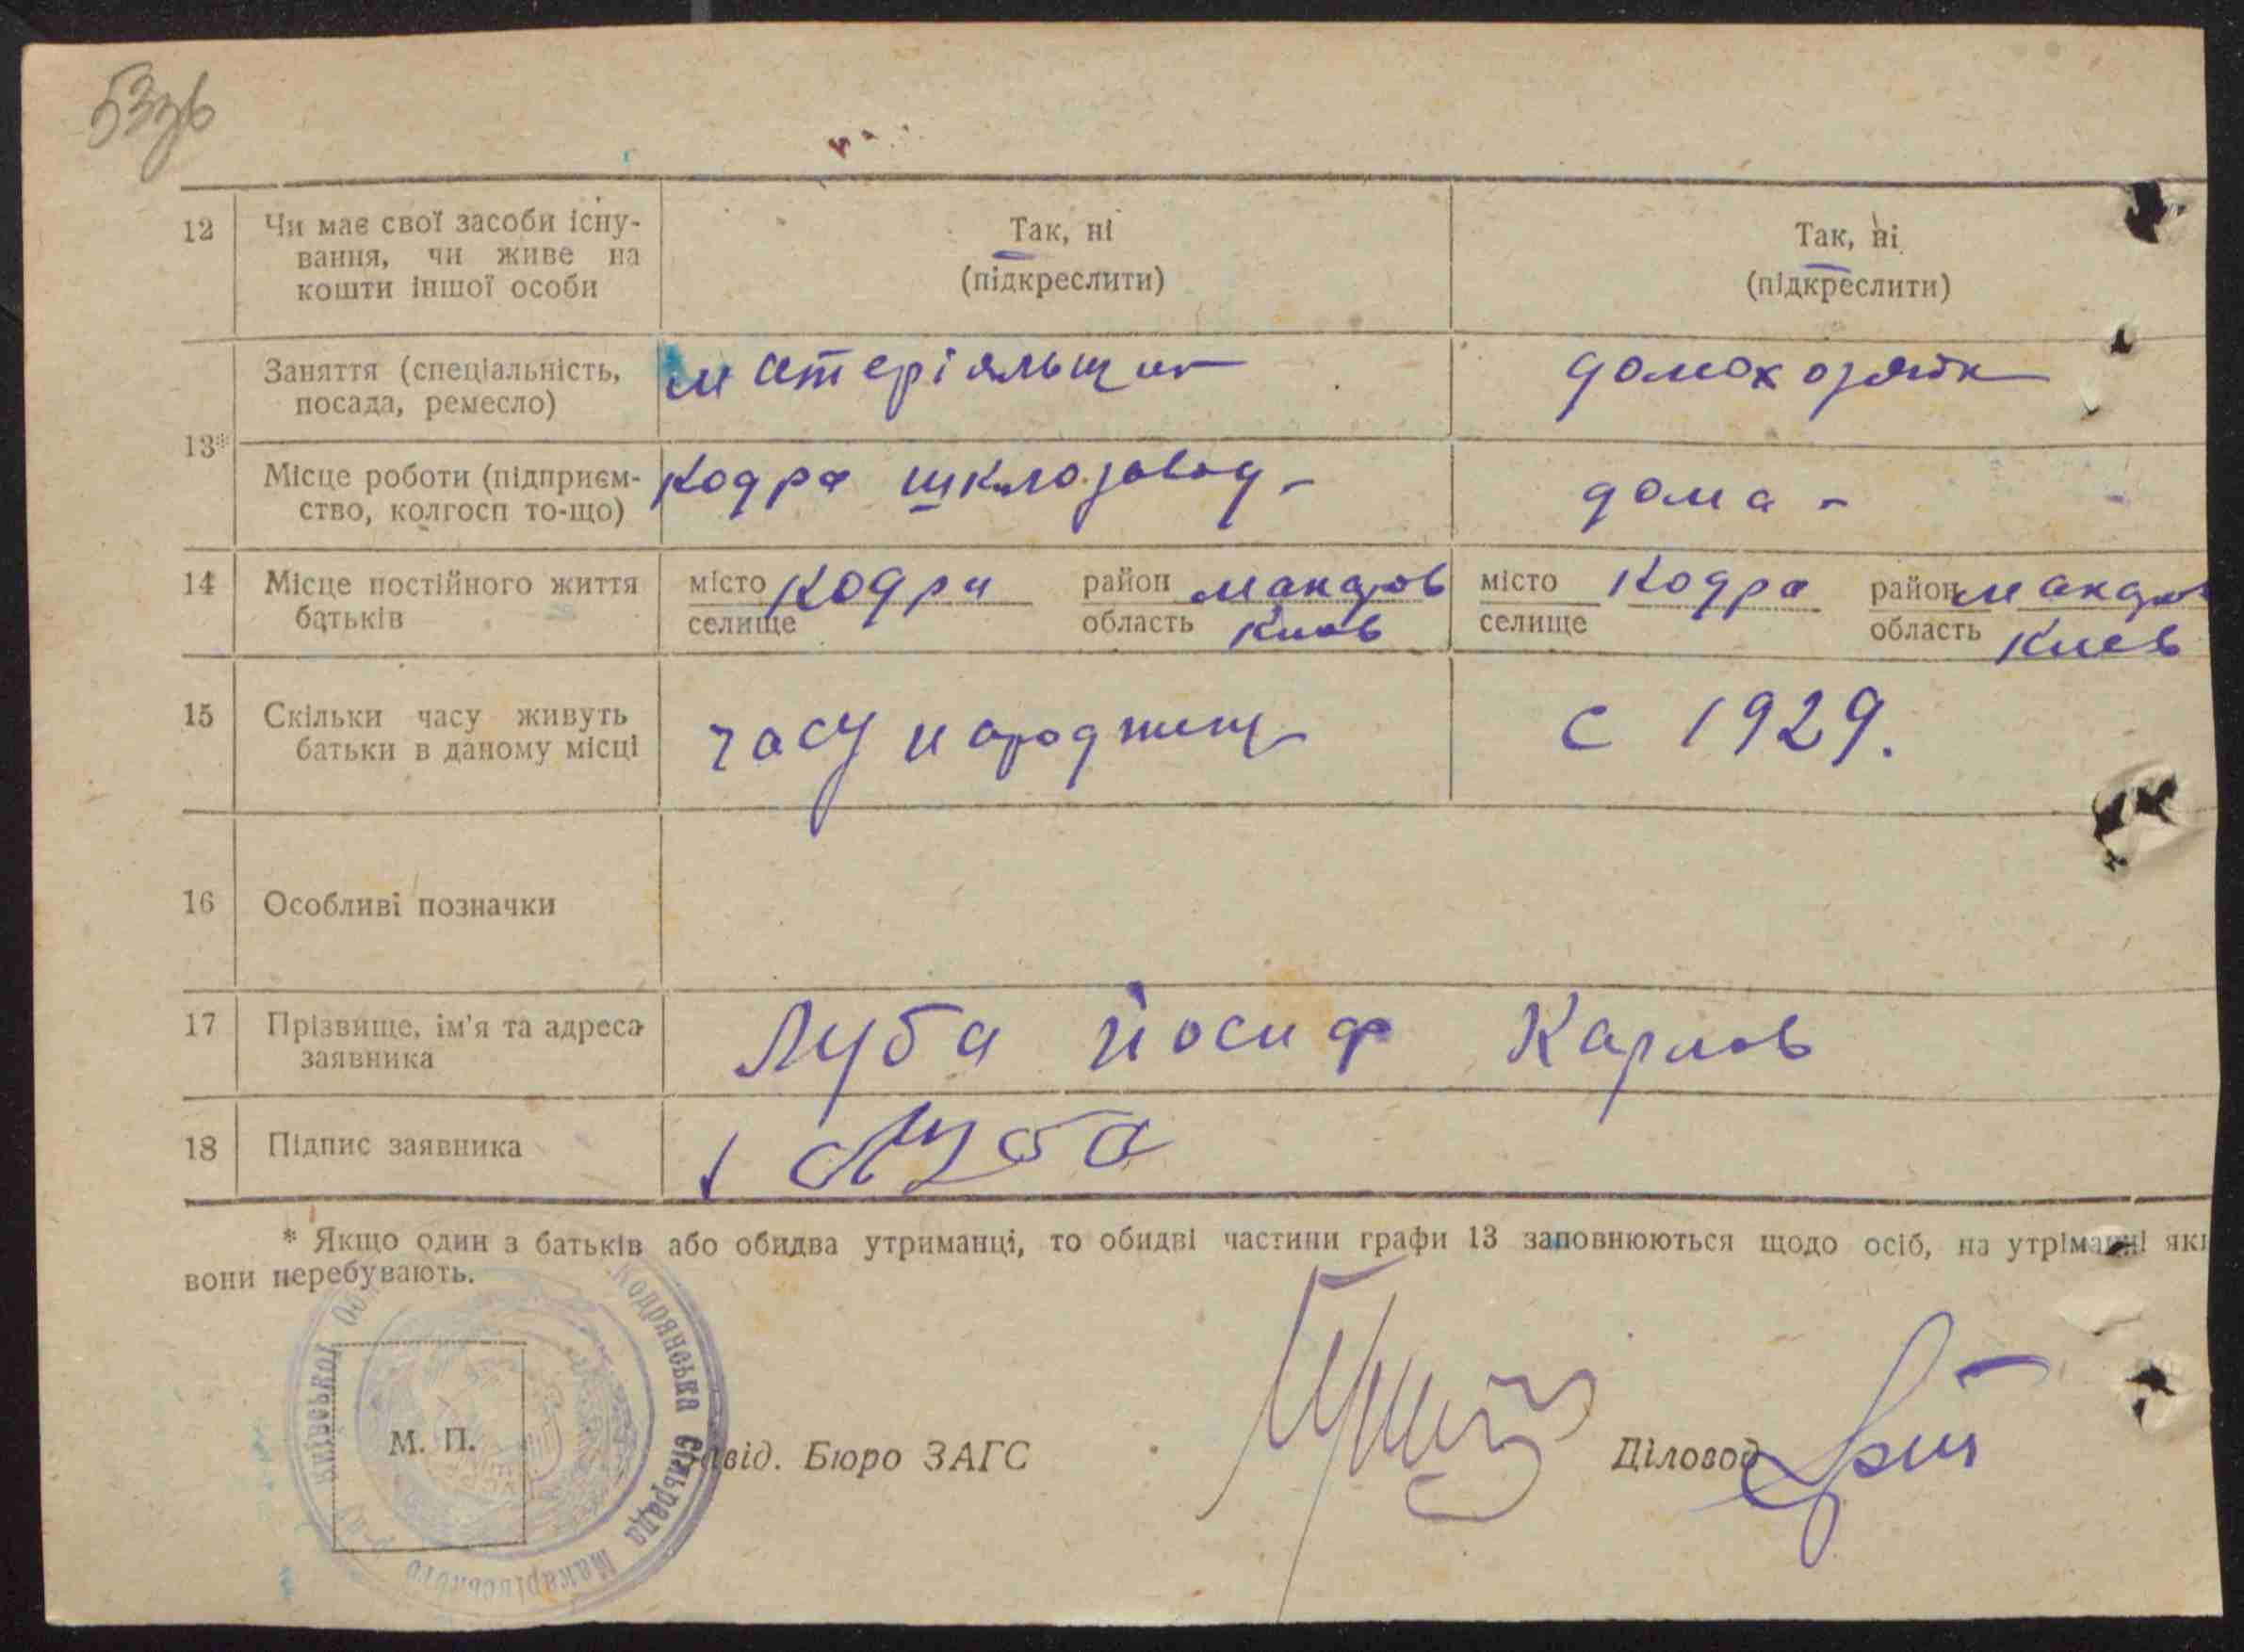 53зв
12 Чи має свої засоби існу- Так, ні Так, ні
вання, чи живе на (підкреслити) (підкреслити)
кошти іншої особи
13* Заняття (спеціальність, матеріяльщик домохозяйк
посада, ремесло)
Місце роботи (підприєм- Кодра шклозавод - дома -
ство, колгосп то-що)
14 Місце постійного життя місто Кодра район Макаров місто Кодра район Макаров
батьків селище область Киев селище область Киев
15 Скільки часу живуть часу народженя С 1929.
батьки в даному місці
16 Особливі позначки
17 Прізвище, ім'я та адреса Луба Йосиф Карлов
заявника
18 Підпис заявника Луба
* Якщо один з батьків або обидва утриманці, то обидві частини графи 13 заповнюються щодо осіб, на утріманні які
вони перебувають.
Кодрянська Сільрада Макарівського р-ну Київської Об
М. П. Завід. Бюро ЗАГС Діловод